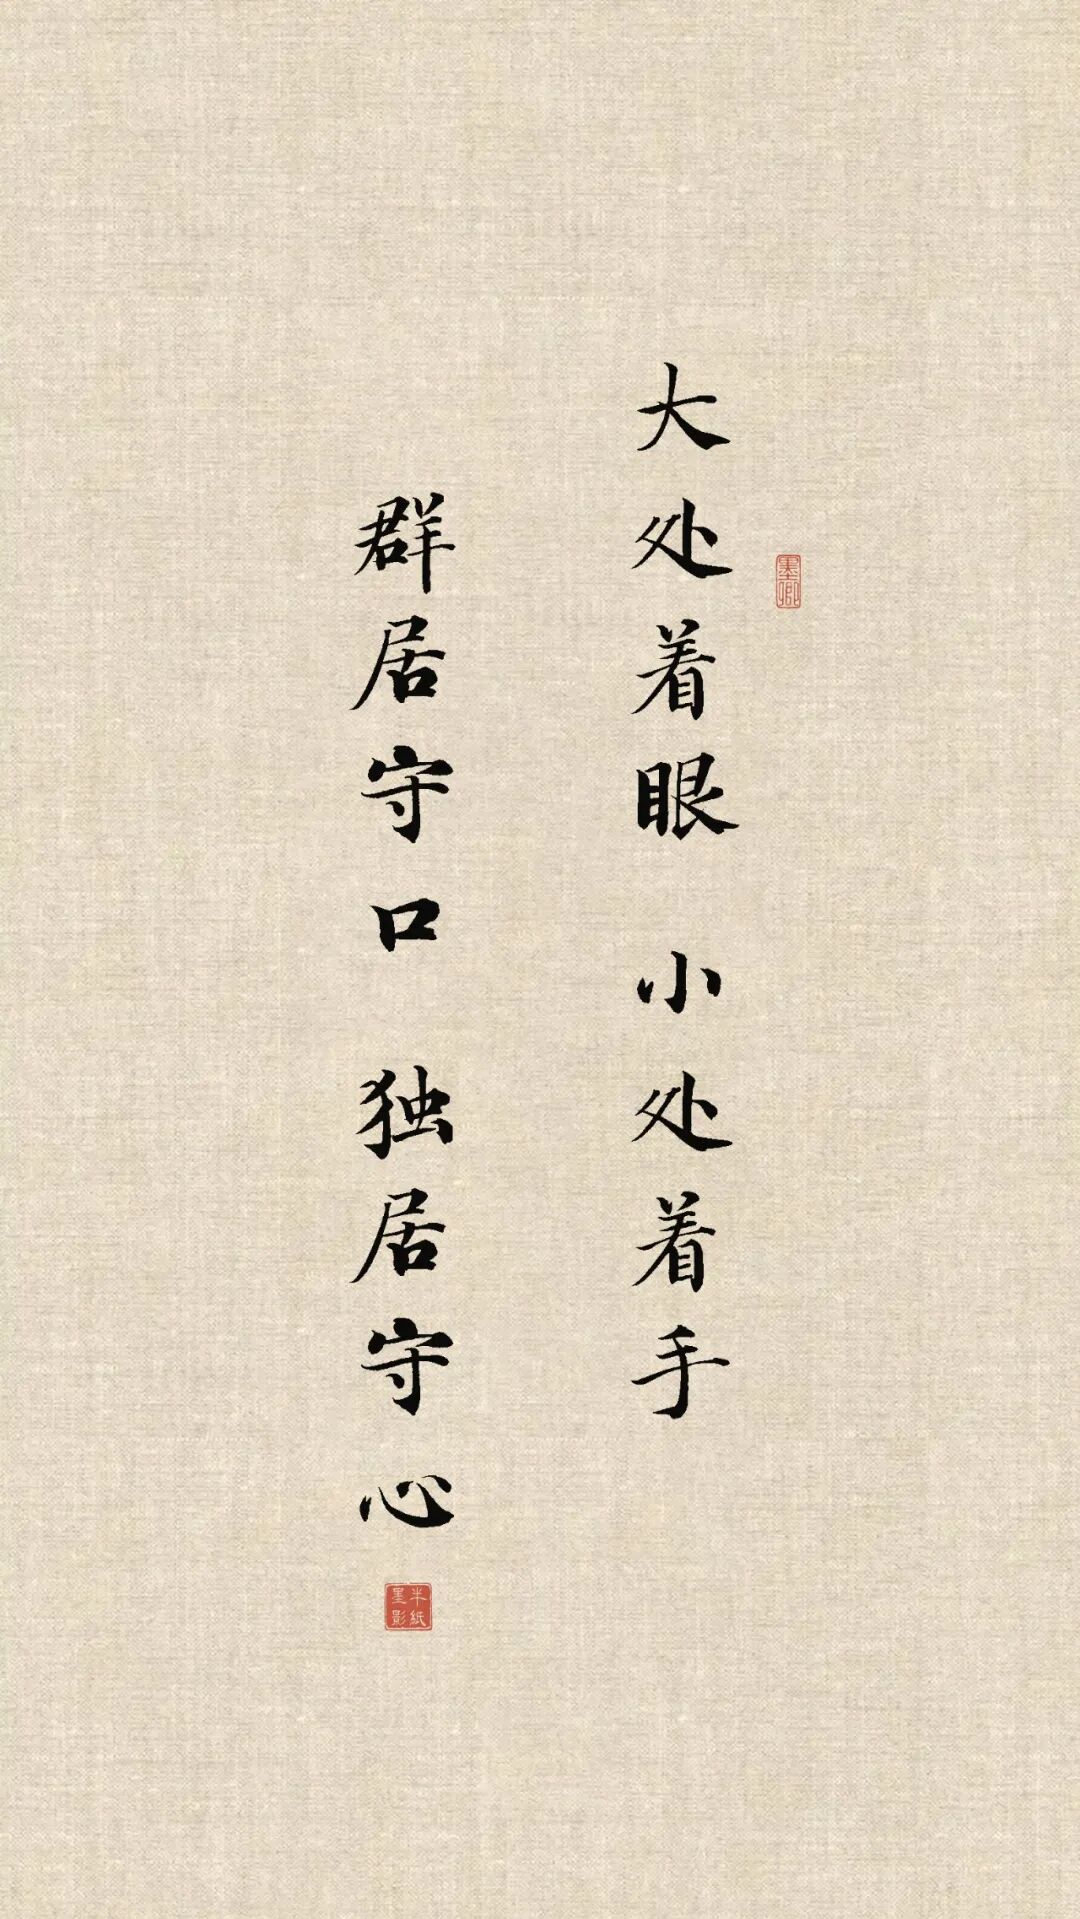 大处着眼 小处着手
群居守口 独居守心
墨卿
半纸墨影